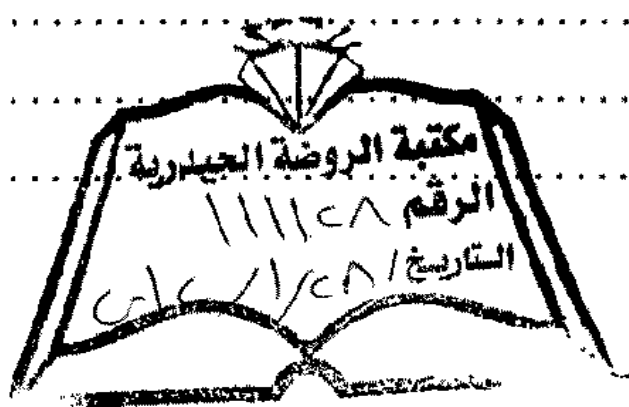 مكتبة الروضة الحيدرية
الرقم ١١١١٢٨
التاريخ / ٢٨ / ١